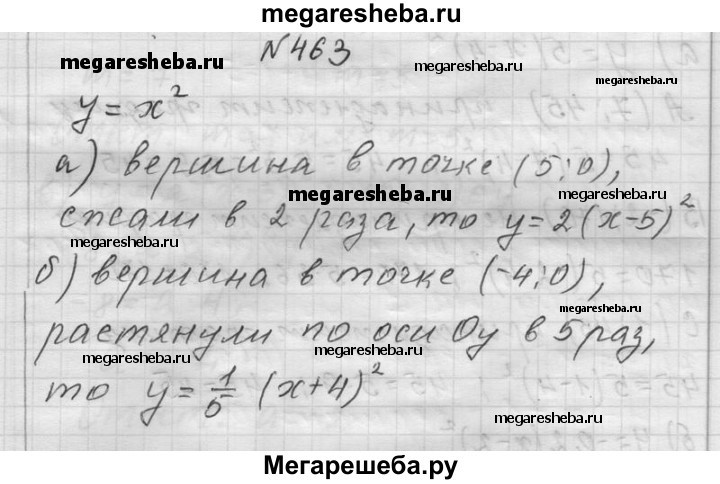 megaresheba.ru
№463
megaresheba.ru
megaresheba.ru
megaresheba.ru
y=x²
а) вершина в точке (5;0),
megaresheba.ru
megaresheba.ru
сжали в 2 раза, то y=2(x-5)²
megaresheba.ru
б) вершина в точке (-4;0),
megaresheba.ru
растянули по оси Oy в 5 раз,
megaresheba.ru
megaresheba.ru
то y=1/5 (x+4)²
megaresheba.ru
Мегарешеба.ру